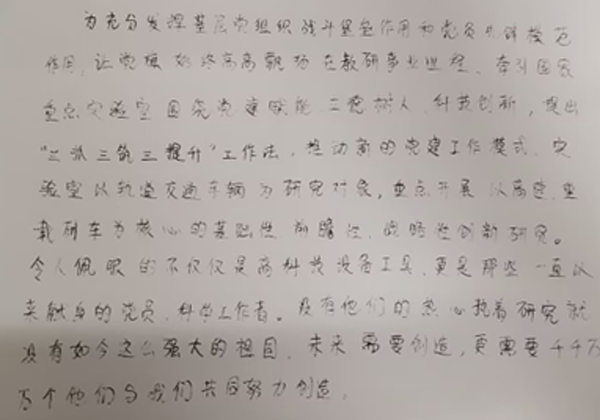 为充分发挥基层党组织战斗堡垒作用和党员先锋模范
作用，让党旗始终高高飘扬在教研事业进程、牵引国家
重点实验室围绕党建赋能、立德树人、科技创新，提出
“三派三能三提升”工作法，推动新的党建工作模式、实
验室以轨道交通车辆为研究对象，重点开展以高速、重
载列车为核心的基础性、前瞻性、战略性创新研究。
令人佩服的不仅仅是高科技设备工具、更是那些一直以
来献身的党员、科学工作者。没有他们的热心执着研究就
没有如今这么强大的祖国、未来需要创造，更需要千千万
万个他们与我们共同努力创造。